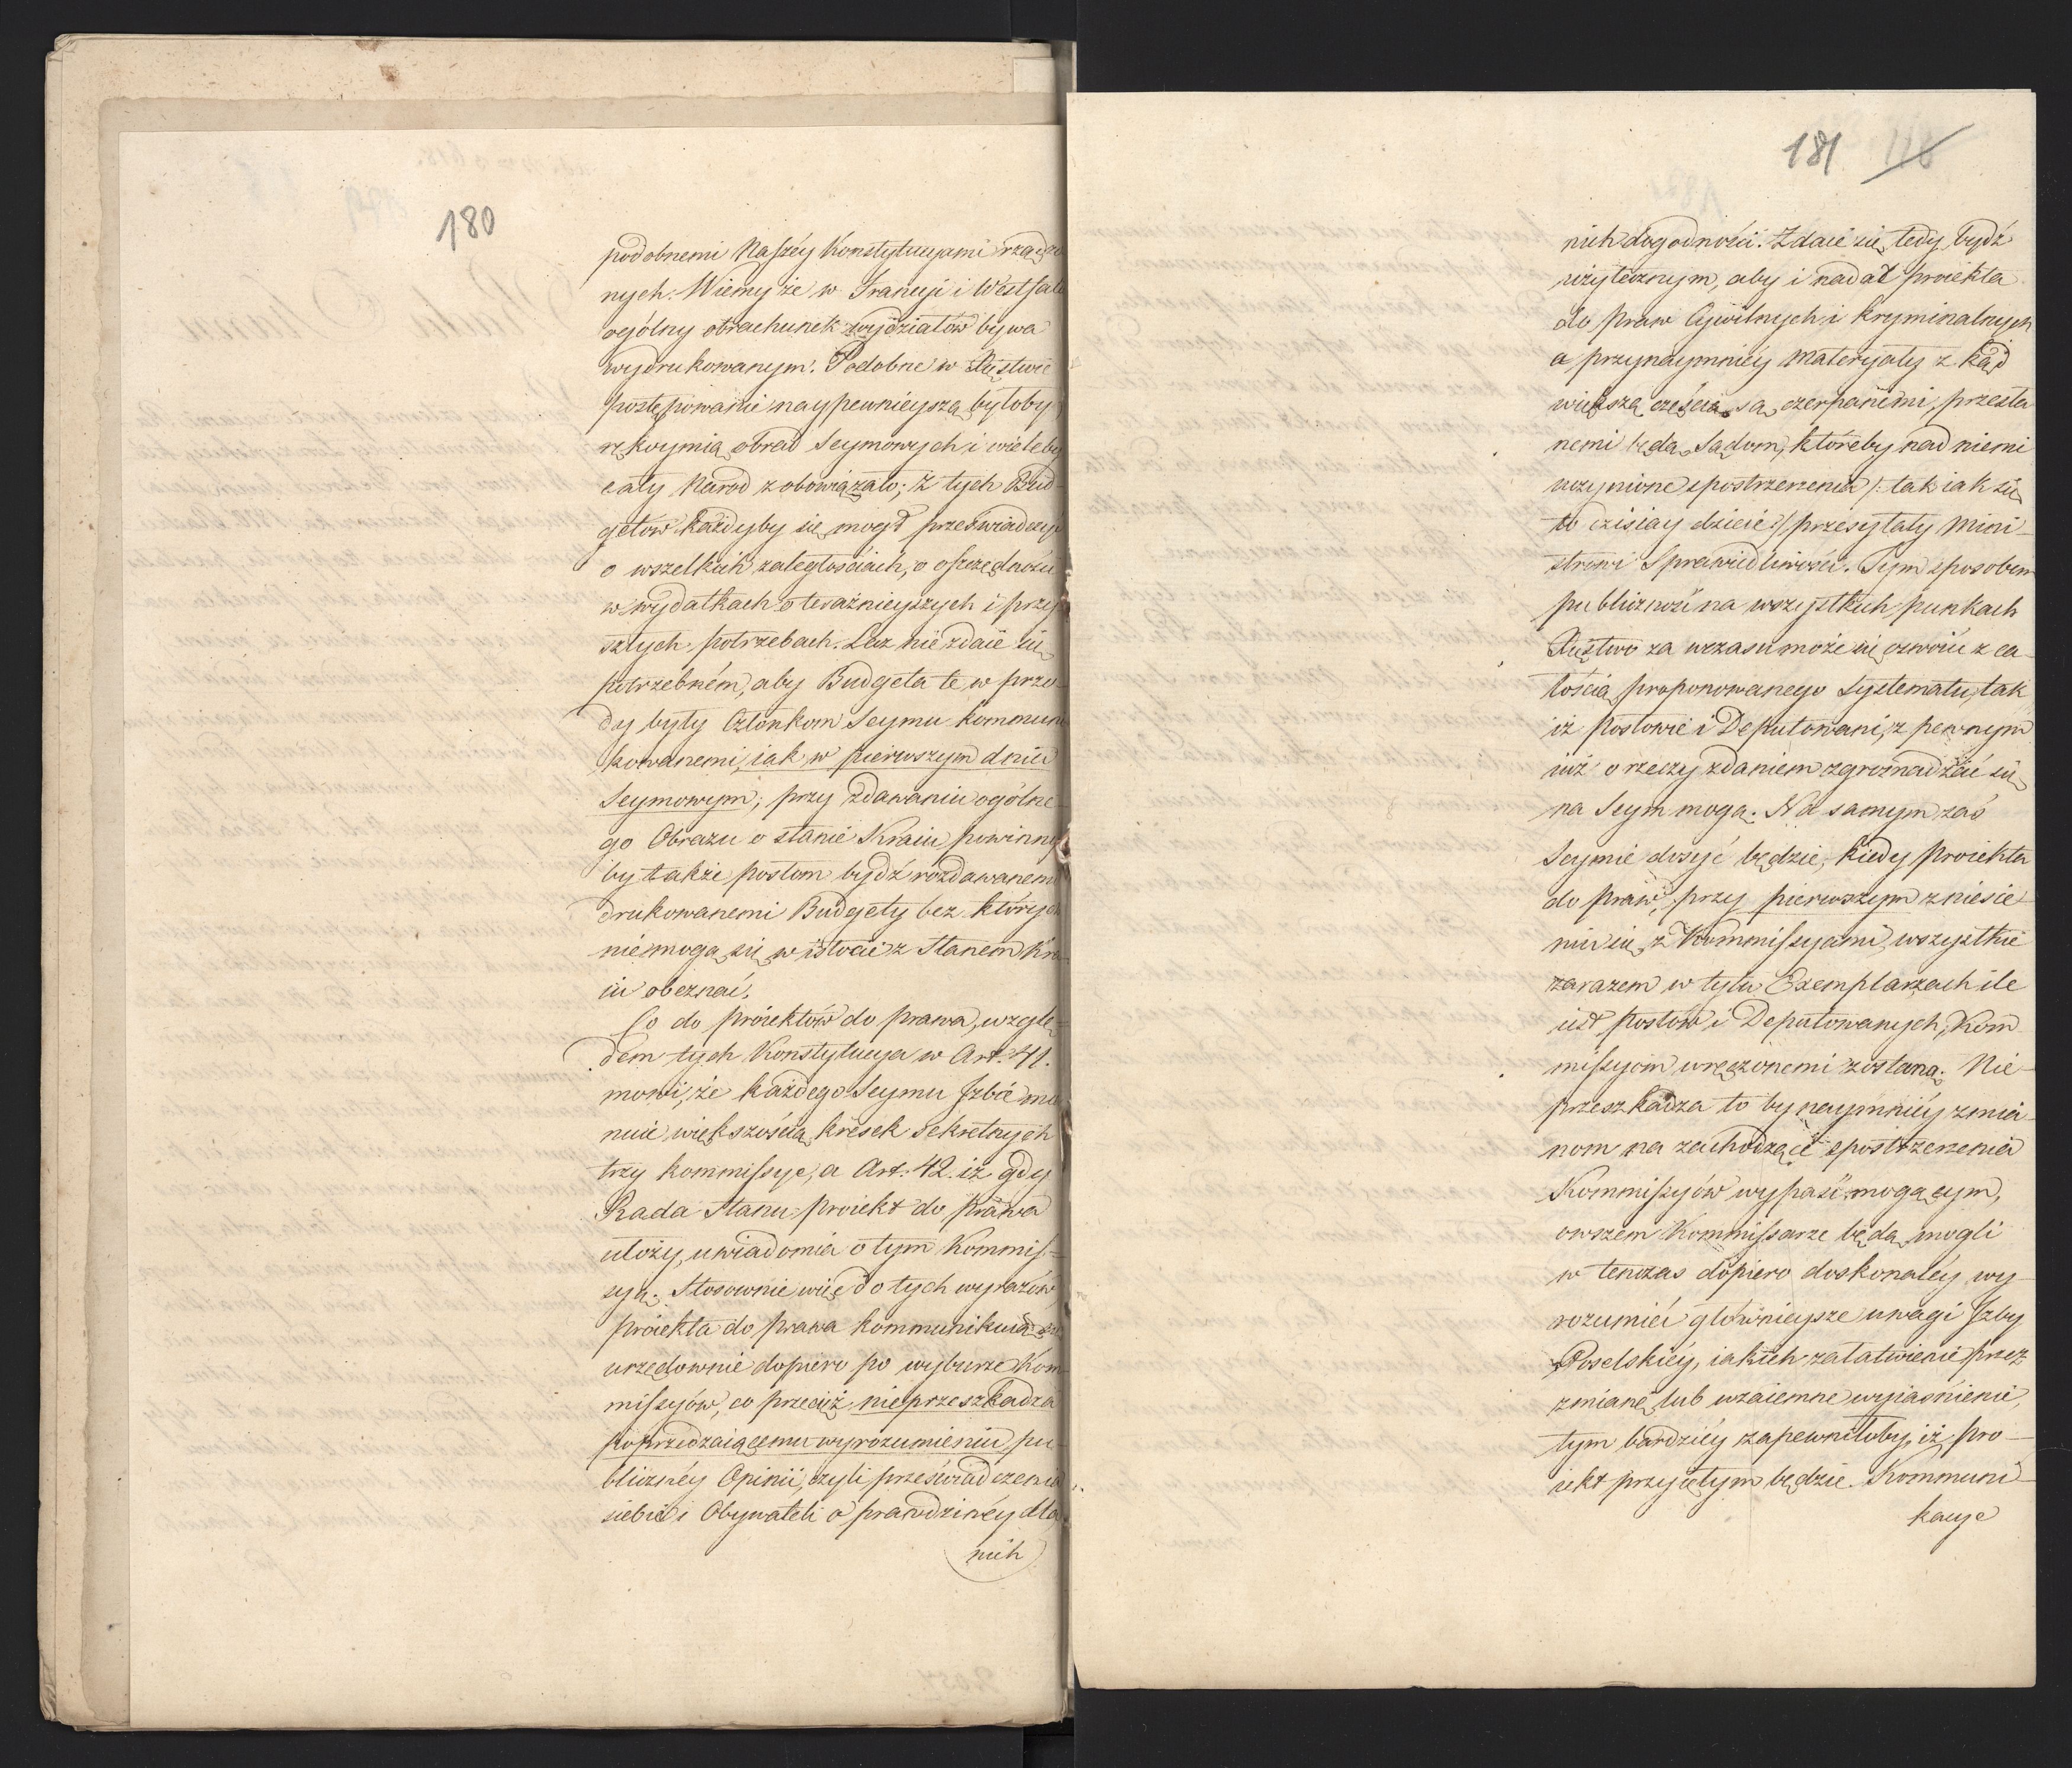 180
podobnemi Naszéy Konstytucyami rządzo
nych. Wiemy że w Francyi i Westfalii
ogólny obrachunek wydziałów bywa
wydrukowanym. Podobne w Xięstwie
postępowanie naypewnieyszą byłoby
rękoymią obrad Seymowych i wieleby
cały Naród zobowiązało; z tych Bud-
getów każdyby się mógł przeświadczyć
o wszelkich zaległościach, o oszczędności
w wydatkach o teraźnieyszych i przy
szłych potrzebach. Lecz nie zdaie się
potrzebném, aby Budgeta te w przó-
dy były Członkom Seymu kommuni
kowanemi, iak w pierwszym dniu
Seymowym; przy zdawaniu ogólne-
go Obrazu o stanie Kraiu powinny
by także posłom bydź rozdawanemi
drukowanemi Budgety bez których
nie mogą się w istocie z Stanem Kra-
iu obeznać.
Co do proiektów do prawa, wzglę-
dem tych Konstytucya w Art. 41.
mówi, że każdego Seymu Izba mia
nuie większością kresek sekretnych
trzy kommissye, a Art: 42. iż gdy
Rada Stanu proiekt do prawa
ułoży, uwiadomia o tym Kommis-
syą. Stosownie więc do tych wyrazów,
proiekta do prawa kommunikuią się
urzędownie dopiero po wyborze Kom-
missyów, co przecież nieprzeszkadza
poprzedzaiącemu wyrozumieniu pu-
bliczney Opinii, czyli przeświadczenia
siebie i Obywateli o prawdziwéy dla
nich
181 116
nich dogodności. Zdaie się tedy bydź
użytecznym, aby i nadal proiekta
do praw Cywilnych i kryminalnych
a przynaymniéy materyały z kąd
większą częścią są czerpanemi, przesła
nemi będą Sądom, któreby nad niemi
uczynione spostrzeżenia /: tak iak się
to dzisiay dzieie :/ przesyłały Mini-
strowi Sprawiedliwości. Tym sposobem
publiczność na wszystkich punktach
Xięstwo za wczasu może się oswoić z ca-
łością proponowanego systematu, tak
iż Posłowie i Deputowani, z pewnym
iuż o rzeczy zdaniem zgromadzać się
na Seym mogą. Na samym zaś
Seymie dosyć będzie, kiedy proiekta
do praw, przy pierwszym zniesie-
niu się z Kommissyami, wszystkie
zarazem w tylu Exemplarzach ile
iest Posłów i Deputowanych, Kom
missyom wręczonemi zostaną. Nie-
przeszkadza to bynaymniéy zmia-
nom na zachodzące spostrzeżenia
Kommissyów wypaść mogącym,
owszem Kommissarze będą mogli
w tenczas dopiero doskonaléy wy-
rozumieć główniejsze uwagi Izby
Poselskiéy, iakich załatwienie przez
zmianę lub wzaiemne wyiaśnienie,
tym bardziéy zapewniłoby, iż pro-
iekt przyiętym będzie. Kommuni-
kacye